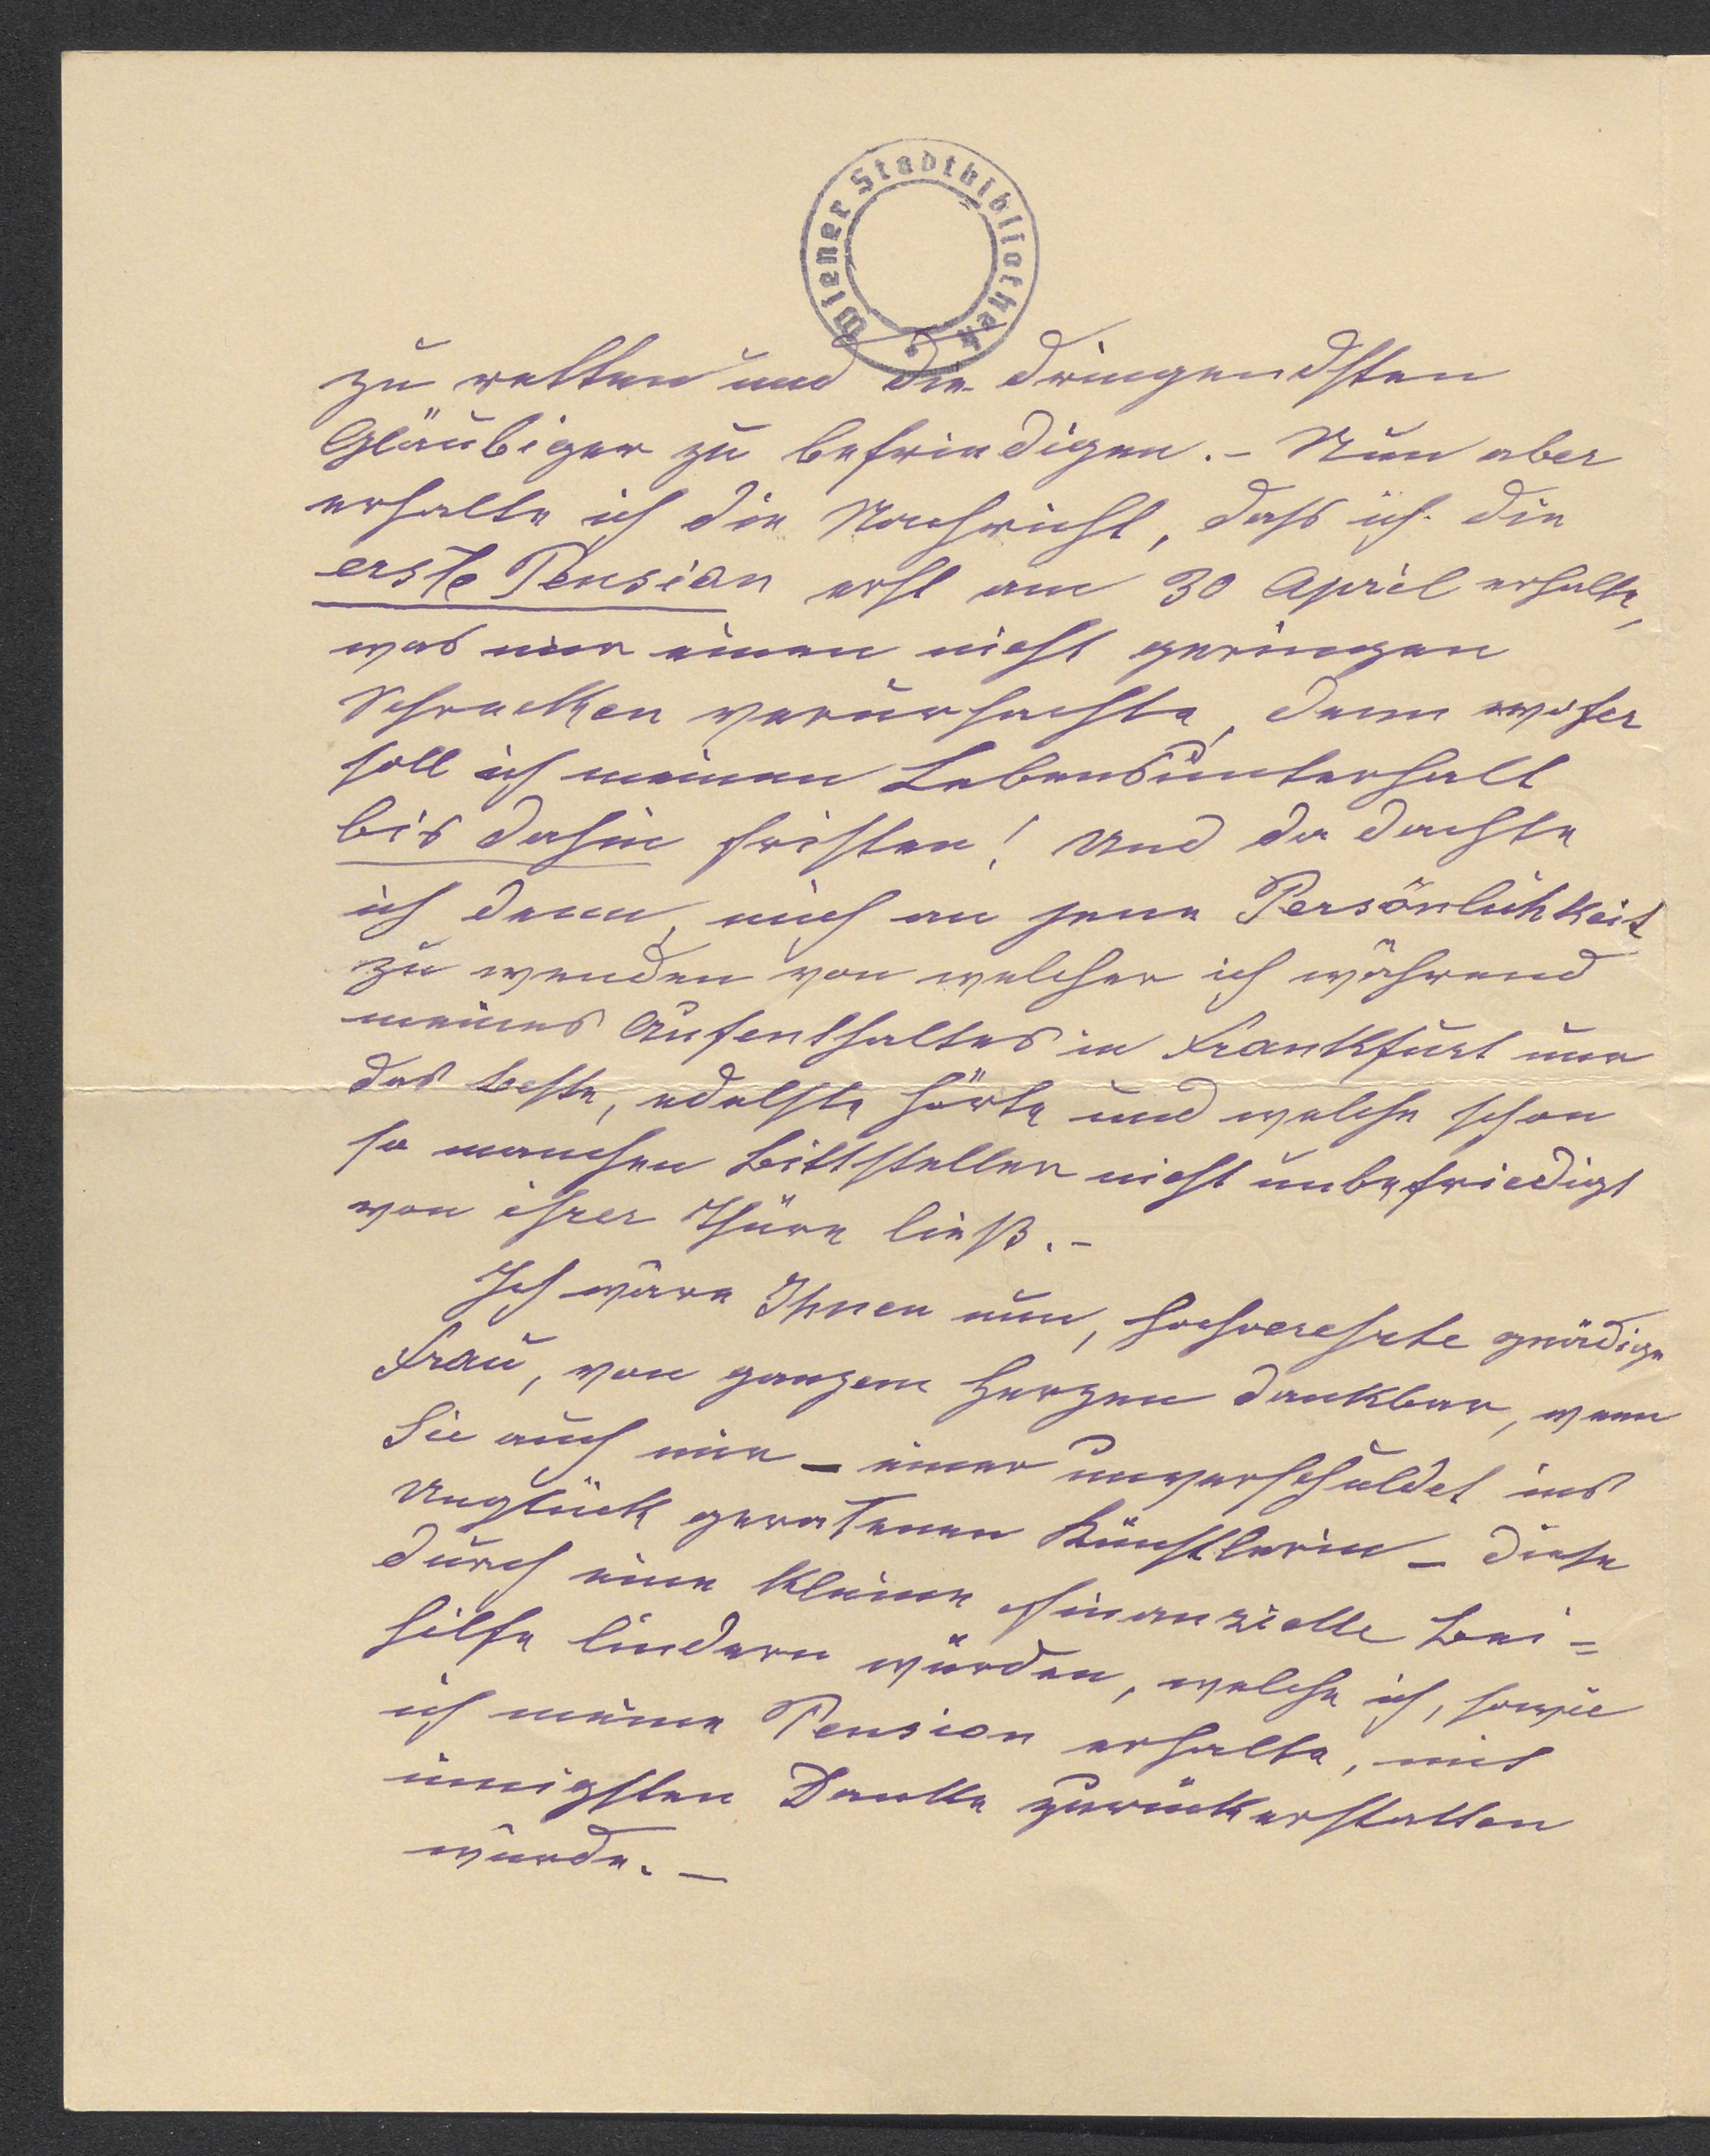 Wiener Stadtbibliothek
zu retten und die dringendsten
Gläubiger zu befriedigen. - Nun aber
erhalte ich die Nachricht, dass ich die
erste Pension erst am 30 April erhalte,
was mir einen nicht geringen
Schrecken verursachte, denn woher
soll ich meinen Lebensunterhalt
bis dahin fristen! Und da dachte
ich denn, mich an jene Persönlichkeit
zu wenden von welcher ich während
meines Aufenthaltes in Frankfurt nur
das beste, edelste hörte und welche schon
so manchen Bittsteller nicht unbefriedigt
von ihrer Thüre ließ. -
Ich wäre Ihnen nun, hochverehrte gnädige
Frau, von ganzem Herzen dankbar, wenn
Sie auch mir - einer unverschuldet ins
Unglück geratenen Künstlerin - diese
durch eine kleine finanzielle Bei=
hilfe lindern würden, welche ich, sowie
ich meine Pension erhalte, mit
innigstem Danke zurückerstatten
würde. -